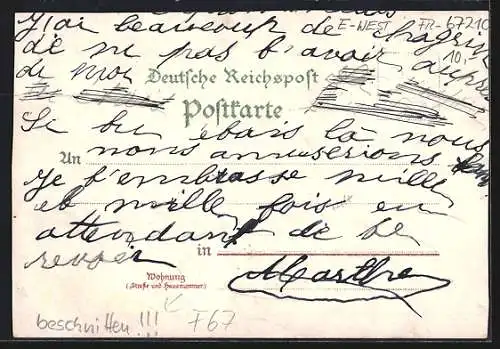 J'ai beaucoup de chagrin
E-WEST FR-67210
de ne pas t'avoir auprès
10,-
de moi
Deutsche Reichspost
Postkarte
Si tu étais là nous
An nous amuserions
Je t'embrasse mille
et mille fois en
attendant de te
in
revoir
Marthe
Wohnung
(Straße und Hausnummer)
beschnitten!!! F67